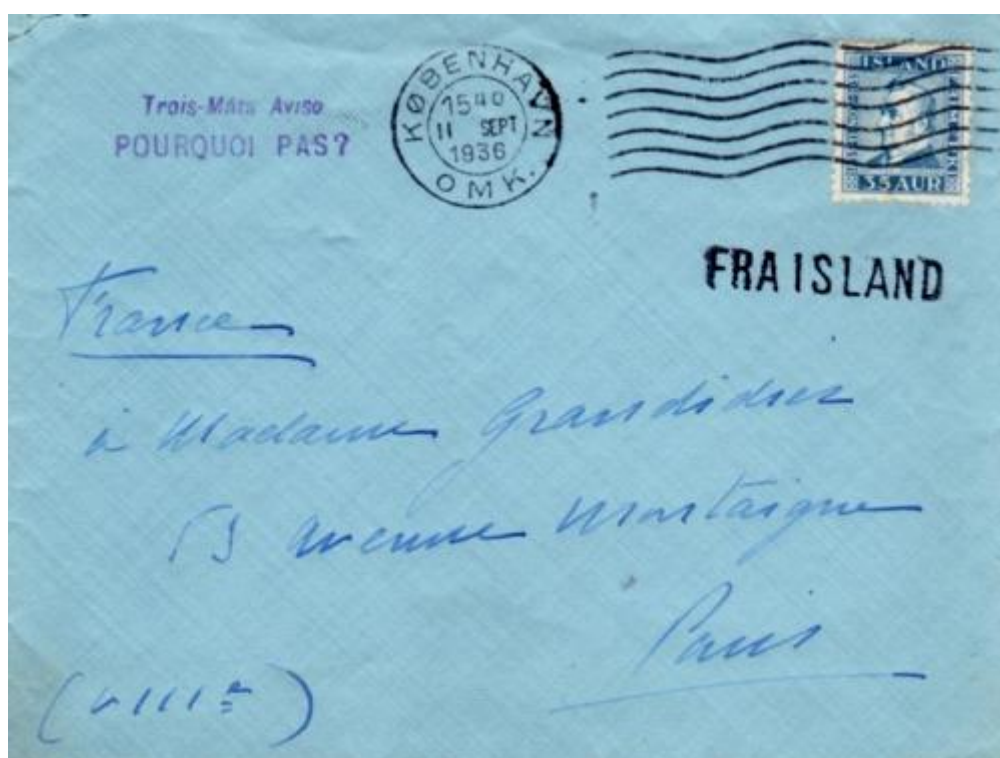 Trois-Mâts Aviso
POURQUOI PAS?
KØBENHAVN
15 40
11 SEPT
1936
OMK.
ISLAND
35 AUR
FRA ISLAND
France
à Madame Grandidier
53 avenue Montaigne
Paris
(VIIIe)